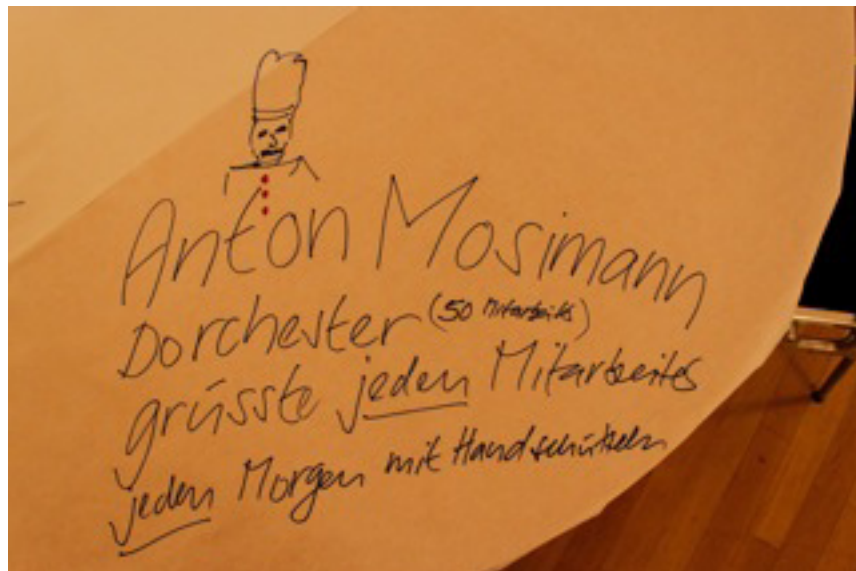 Anton Mosimann
Dorchester (50 Mitarbeiter)
grüsste jeden Mitarbeiter
jeden Morgen mit Handschütteln